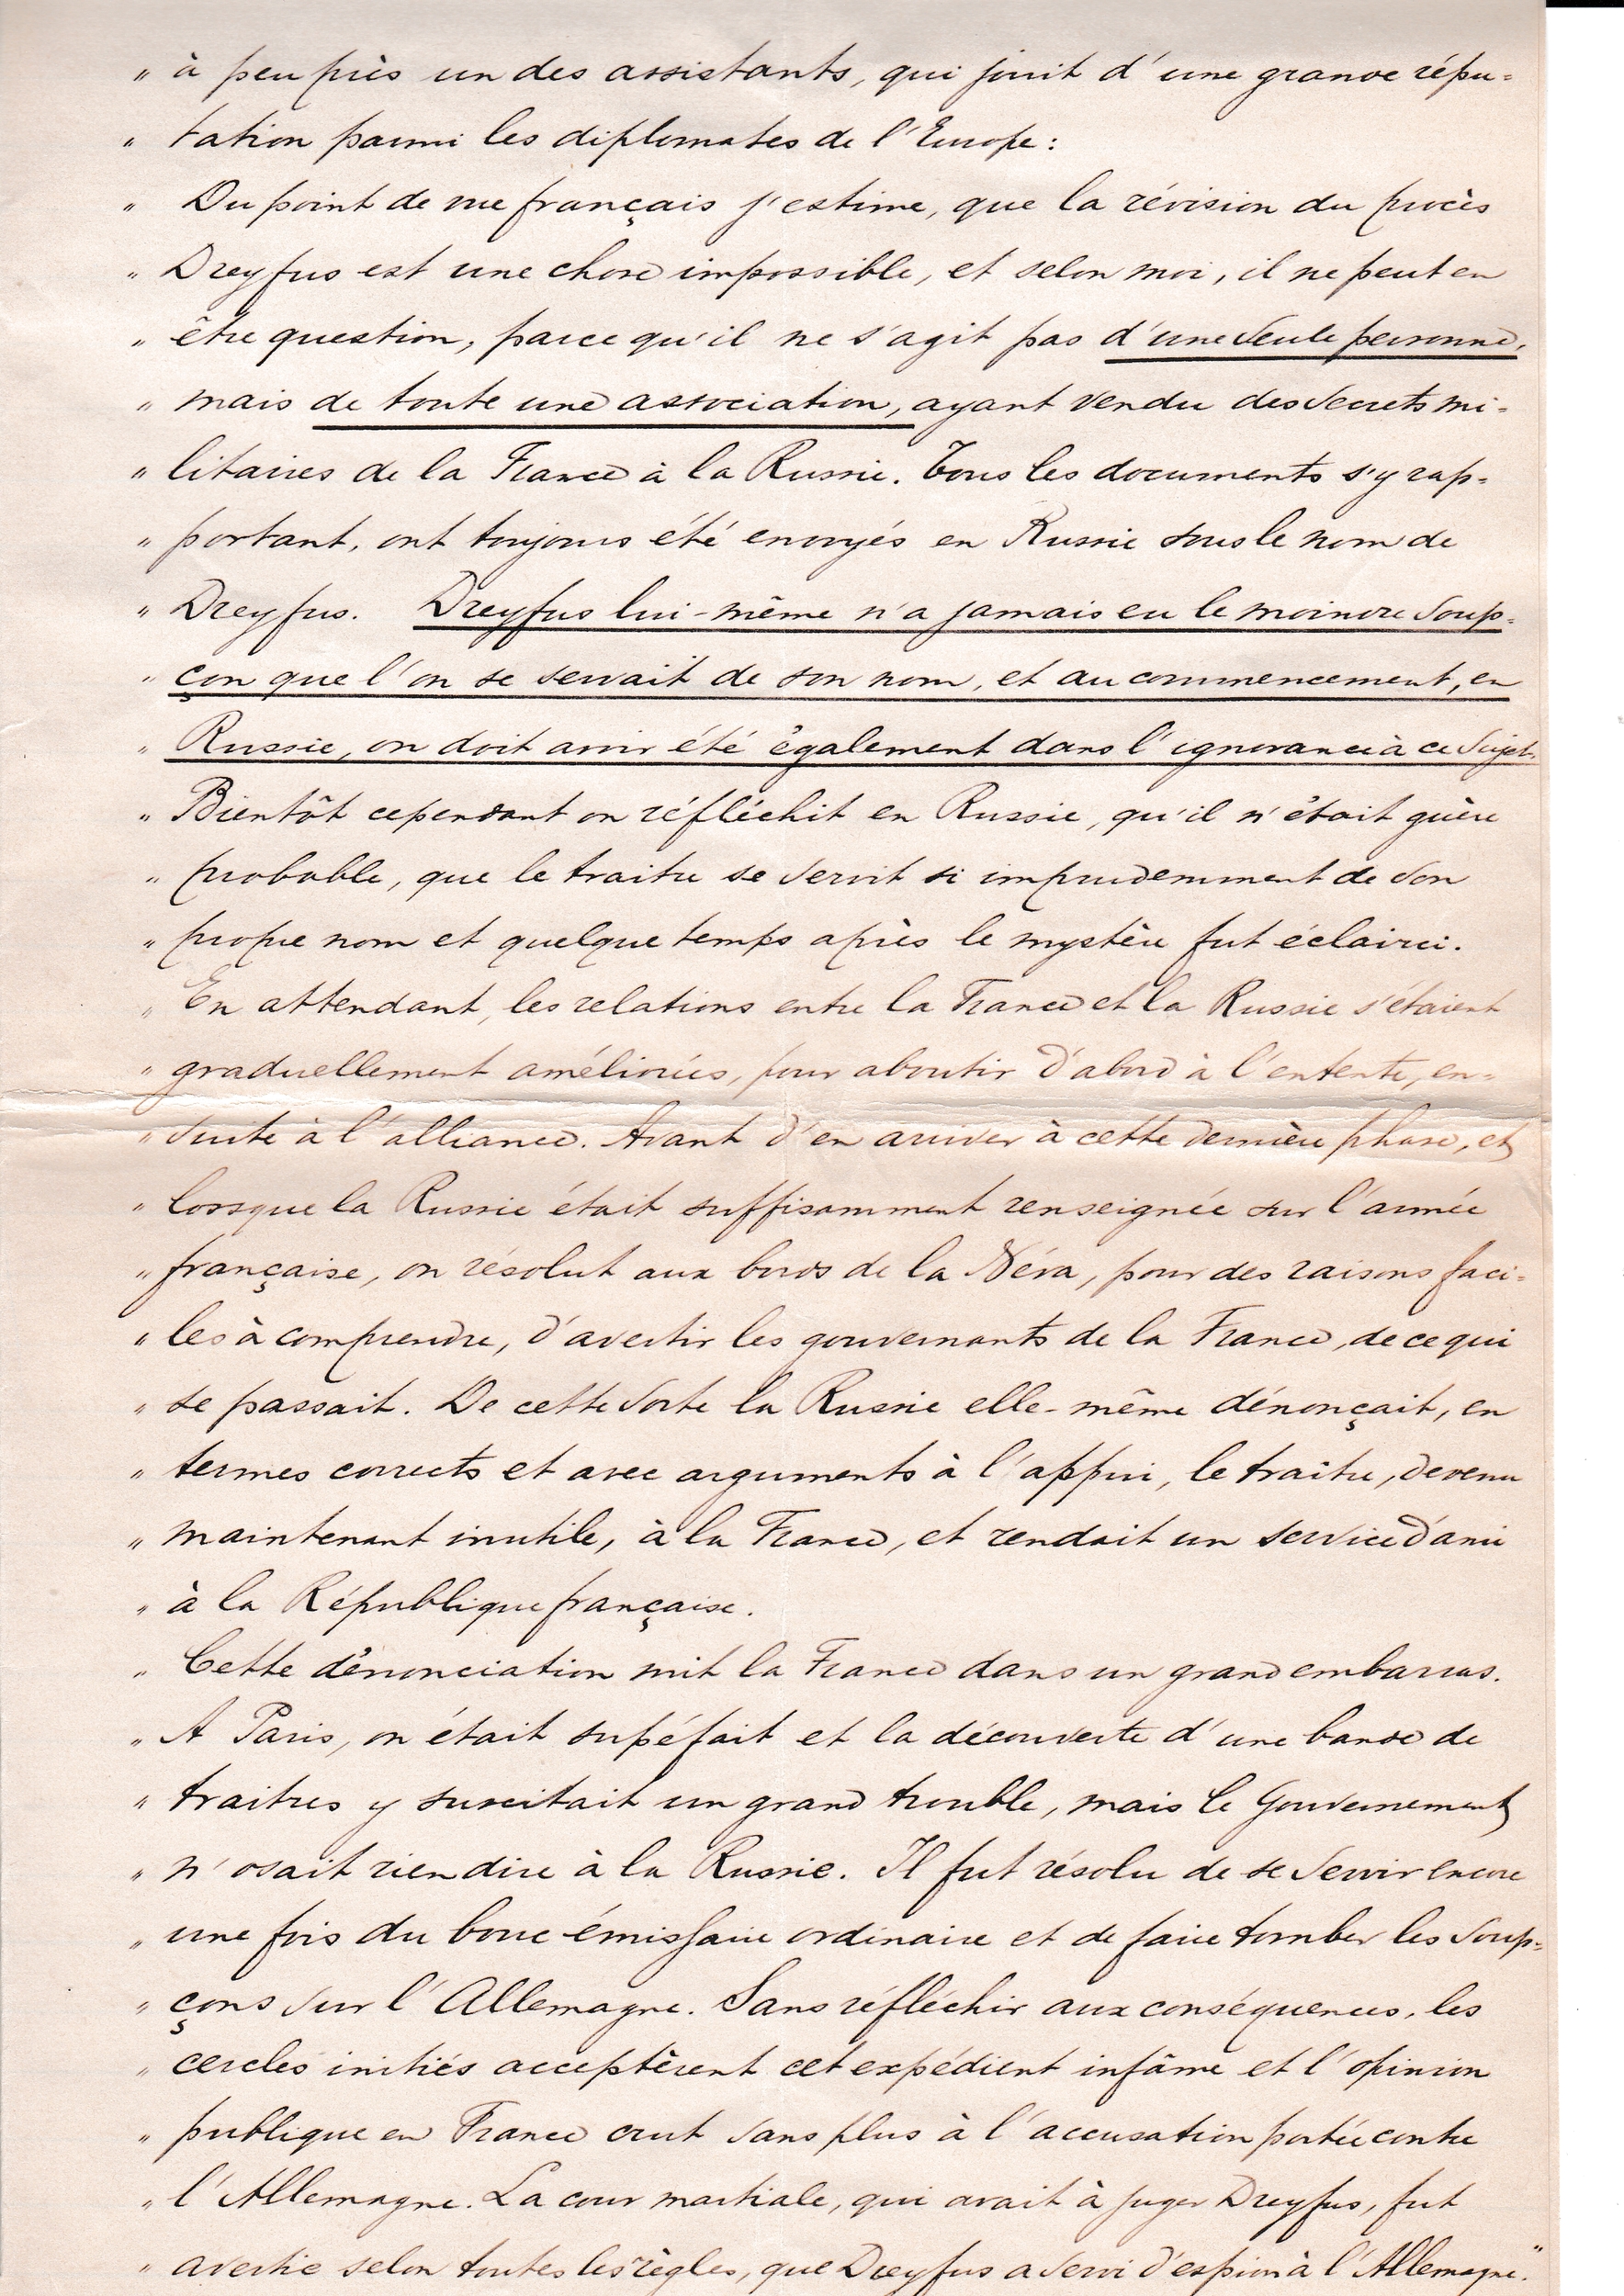 „ à peu près un des assistants, qui jouit d'une grande répu=
„ tation parmi les diplomates de l'Europe:
„ Du point de vue français j'estime, que la révision du procès
„ Dreyfus est une chose impossible, et selon moi, il ne peut en
„ être question, parce qu'il ne s'agit pas d'une seule personne,
„ mais de toute une association, ayant vendu des secrets mi=
„ litaires de la France à la Russie. Tous les documents s'y rap=
„ portant, ont toujours été envoyés en Russie sous le nom de
„ Dreyfus. Dreyfus lui-même n'a jamais eu le moindre soup=
„ çon que l'on se servait de son nom, et au commencement, en
„ Russie, on doit avoir été également dans l'ignorance à ce sujet.
„ Bientôt cependant on réfléchit en Russie, qu'il n'était guère
„ probable, que le traitre se servit si imprudemment de son
„ propre nom et quelque temps après le mystère fut éclairci.
„ En attendant, les relations entre la France et la Russie s'étaient
„ graduellement améliorées, pour aboutir d'abord à l'entente, en=
„ suite à l'alliance. Avant d'en arriver à cette dernière phase, et
„ lorsque la Russie était suffisamment renseignée sur l'armée
„ française, on résolut aux bords de la Néva, pour des raisons faci=
„ les à comprendre, d'avertir les gouvernants de la France, de ce qui
„ se passait. De cette sorte la Russie elle-même dénonçait, en
„ termes corrects et avec arguments à l'appui, le traître, devenu
„ maintenant inutile, à la France, et rendait un service d'ami
„ à la République française.
„ Cette dénonciation mit la France dans un grand embarras.
„ A Paris, on était supéfait et la découverte d'une bande de
„ traitres y suscitait un grand trouble, mais le Gouvernement
„ n'osait rien dire à la Russie. Il fut résolu de se servir encore
„ une fois du bouc-émissaire ordinaire et de faire tomber les soup=
„ çons sur l'Allemagne. Sans réfléchir aux conséquences, les
„ cercles initiés acceptèrent cet expédient infâme et l'opinion
„ publique en France crut sans plus à l'accusation portée contre
„ l'Allemagne. La cour martiale, qui avait à juger Dreyfus, fut
„ avertie selon toutes les règles, que Dreyfus a servi d'espion à l'Allemagne."